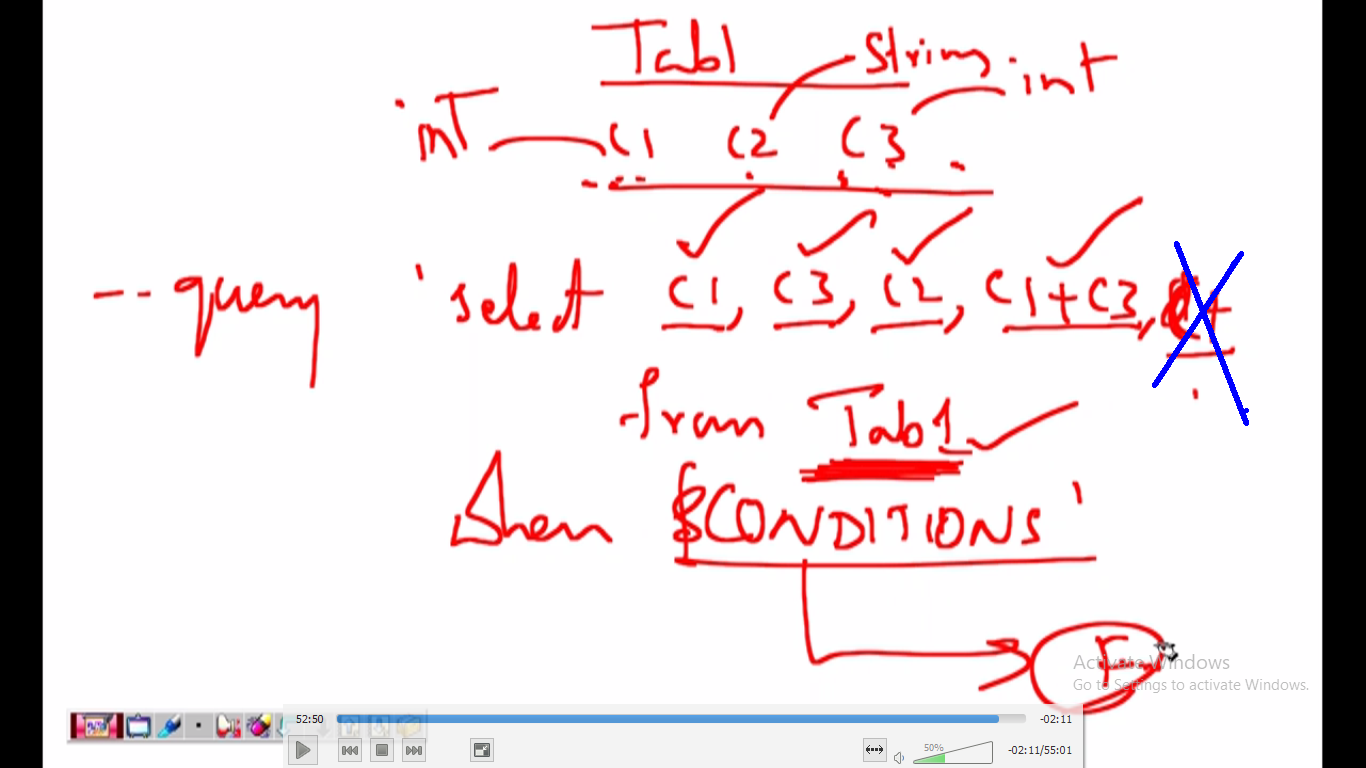 Tab1
String int
int C1 C2 C3
--query 'select C1, C3, C2, C1+C3,
from Tab1
When $CONDITIONS'
F
Activate Windows
Go to Settings to activate Windows.
52:50 -02:11
50% -02:11/55:01